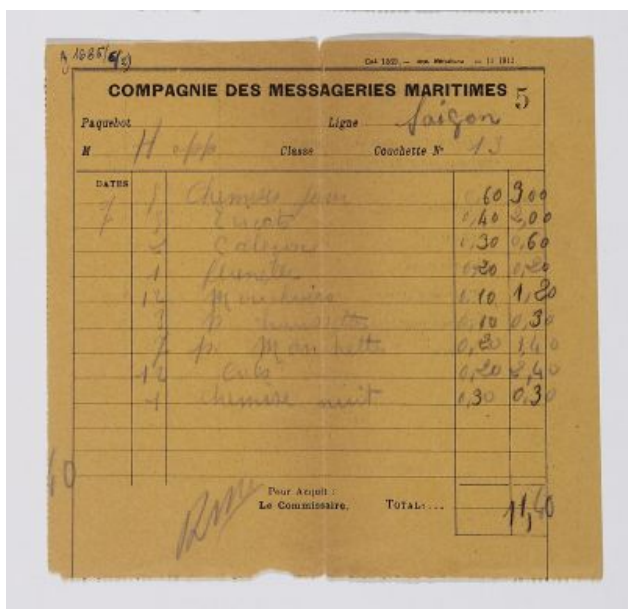 COMPAGNIE DES MESSAGERIES MARITIMES 5
Paquebot Ligne Saigon
M Hopp Classe Couchette Nº 13
DATES
7 Chemises jour 0,60 3,00
Tricots 0,40 2,00
2 Caleçons 0,30 0,60
1 flanelle 0,20 0,20
12 Mouchoirs 0,10 1,20
3 p. chaussettes 0,10 0,30
7 p. Manchettes 0,20 1,40
12 Cols 0,20 2,40
1 chemise nuit 0,30 0,30
40
Pour Acquit :
Le Commissaire. TOTAL.... 11,40